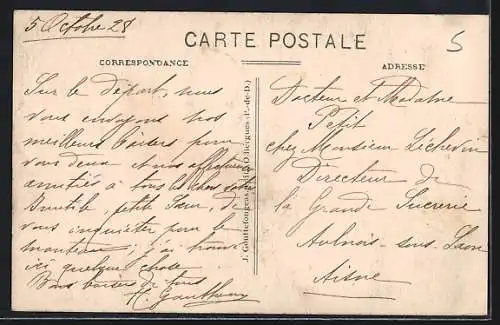 5 Octobre 28
CARTE POSTALE
5
CORRESPONDANCE
ADRESSE
Sur le départ, nous
vous envoyons nos
meilleurs baisers pour
vous deux et nos affectueuses
amitiés à tous les chers
petite Sœur, de
vous inquiéter pour le
manteau; j'ai trouvé
ici quelque chose
Bons baisers de tous
Docteur et Madame
Petit
chez Monsieur
Directeur de
la Grande Sucrerie
Aulnois-sous-Laon
Aisne